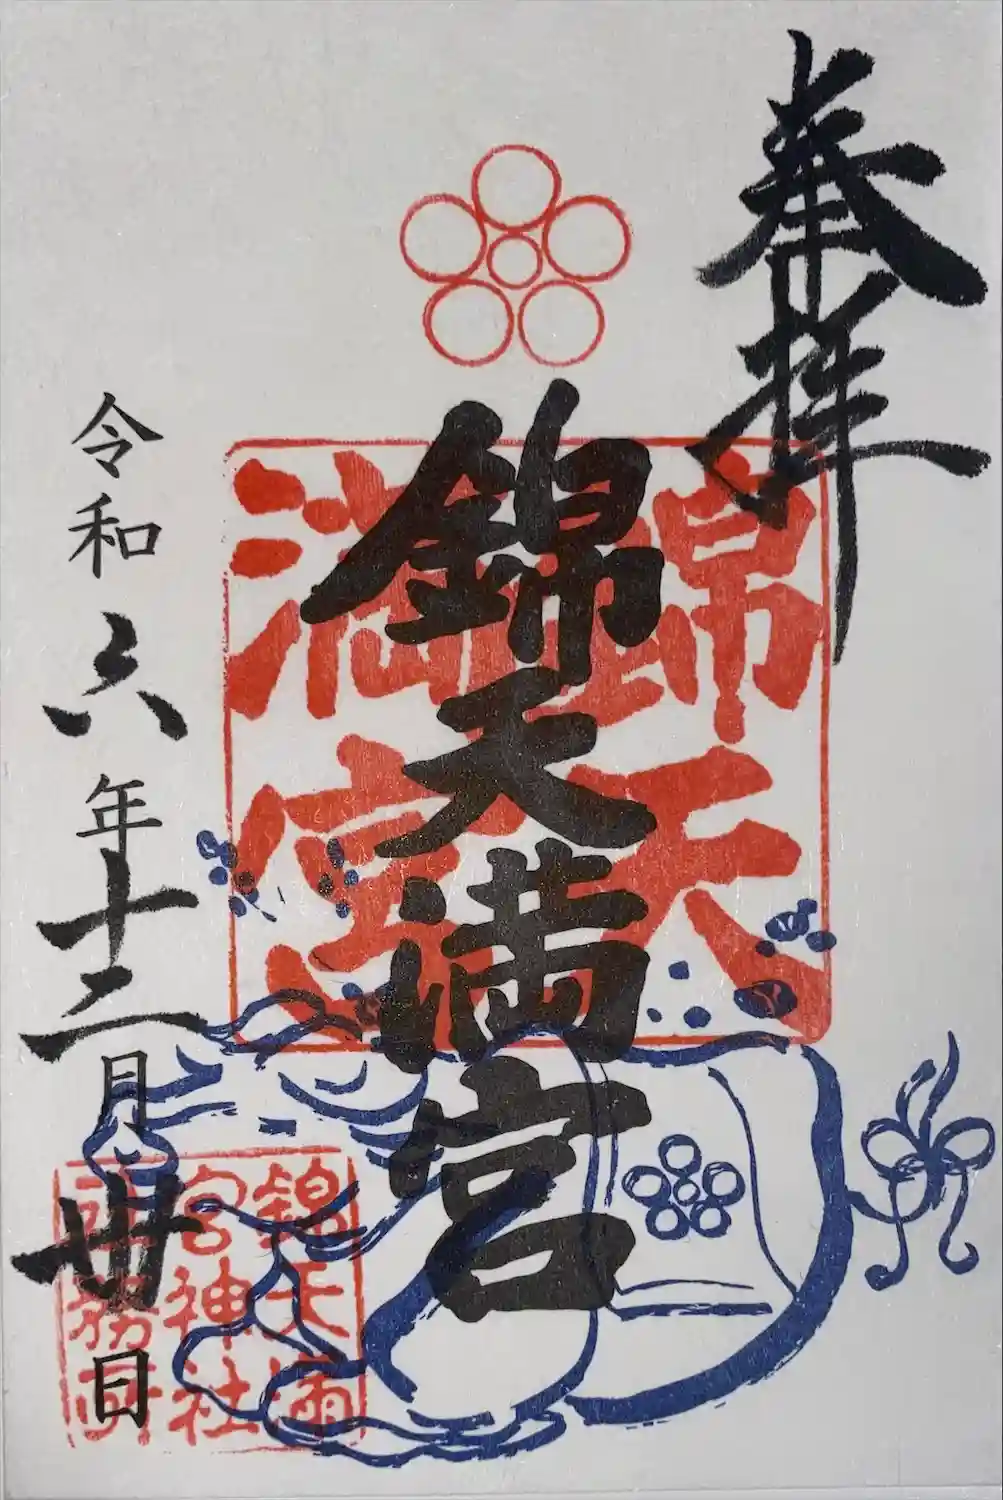 奉拝
錦天満宮
錦天
満宮
令和六年十二月卅日
錦天満
宮神社
社務所